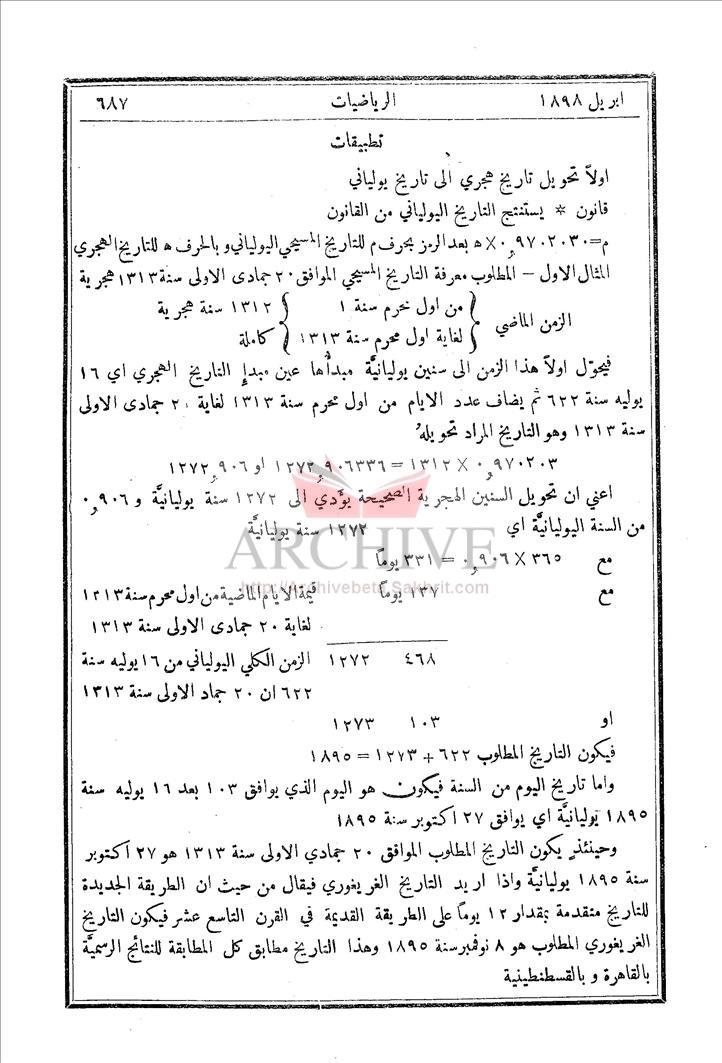 ابريل ١٨٩٨ الرياضيات ٦٨٧
تطبيقات
اولاً تحويل تاريخ هجري الى تاريخ يولياني
قانون * يستنتج التاريخ اليولياني من القانون
م=٠,٩٧٠٢٠٣٠ × ه بعد الرمز بحرف م للتاريخ المسيحي اليولياني وبالحرف ه للتاريخ الهجري
المثال الاول – المطلوب معرفة التاريخ المسيحي الموافق ٢٠ جمادى الاولى سنة ١٣١٣ هجرية
الزمن الماضي { من اول محرم سنة ١ } ١٣١٢ سنة هجرية
لغاية اول محرم سنة ١٣١٣ كاملة
فيحوّل اولاً هذا الزمن الى سنين يوليانيَّة مبدأُها عين مبدإِ التاريخ الهجري اي ١٦
يوليه سنة ٦٢٢ ثم يضاف عدد الايام من اول محرم سنة ١٣١٣ لغاية ٢٠ جمادى الاولى
سنة ١٣١٣ وهو التاريخ المراد تحويلهُ
٠,٩٧٠٢٠٣ × ١٣١٢ = ١٢٧٢,٩٠٦٣٣٦ او ١٢٧٢,٩٠٦
اعني ان تحويل السنين الهجرية الصحيحة يؤدي الى ١٢٧٢ سنة يوليانيَّة و ٠,٩٠٦
من السنة اليوليانيَّة اي ١٢٧٢ سنة يوليانيَّة
ARCHIVE
مع ٣٦٥ × ٠,٩٠٦ = ٣٣١ يوماً
http://Archivebeta.Sakhrit.com
مع ١٣٧ يوماً قيمة الايام الماضية من اول محرم سنة ١٣١٣
لغاية ٢٠ جمادى الاولى سنة ١٣١٣
٤٦٨ ١٢٧٢ الزمن الكلي اليولياني من ١٦ يوليه سنة
٦٢٢ ان ٢٠ جماد الاولى سنة ١٣١٣
او ١٠٣ ١٢٧٣
فيكون التاريخ المطلوب ٦٢٢ + ١٢٧٣ = ١٨٩٥
واما تاريخ اليوم من السنة فيكون هو اليوم الذي يوافق ١٠٣ بعد ١٦ يوليه سنة
١٨٩٥ يوليانيَّة اي يوافق ٢٧ اكتوبر سنة ١٨٩٥
وحينئذٍ يكون التاريخ المطلوب الموافق ٢٠ جمادي الاولى سنة ١٣١٣ هو ٢٧ اكتوبر
سنة ١٨٩٥ يوليانيَّة واذا اريد التاريخ الغريغوري فيقال من حيث ان الطريقة الجديدة
للتاريخ متقدمة بمقدار ١٢ يوماً على الطريقة القديمة في القرن التاسع عشر فيكون التاريخ
الغريغوري المطلوب هو ٨ نوفمبر سنة ١٨٩٥ وهذا التاريخ مطابق كل المطابقة للنتائج الرسميَّة
بالقاهرة وبالقسطنطينية